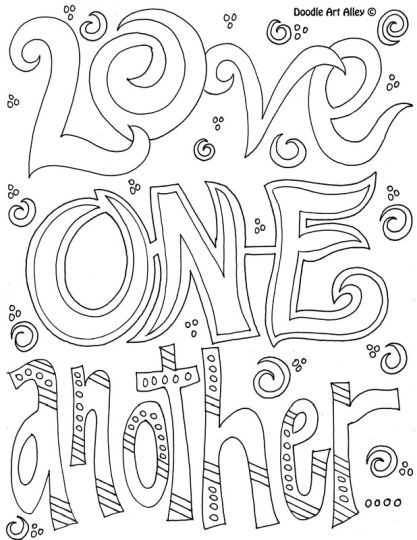 Doodle Art Alley ©
Love
ONE
another....